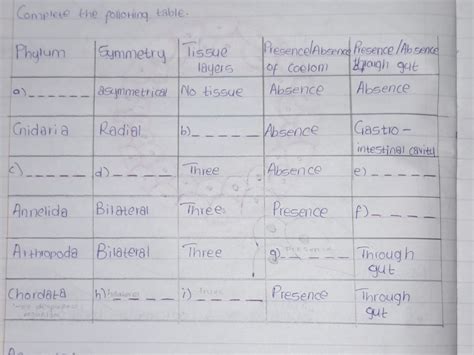 Complete the following table.
Phylum Symmetry Tissue layers Presence/Absence of Coelom Presence/Absence through gut
a) _ _ _ _ _ _ asymmetrical No tissue Absence Absence
Cnidaria Radial b) _ _ _ _ Absence Gastro-intestinal cavity
c) _ _ _ _ _ d) _ _ _ _ Three Absence e) _ _ _ _
Annelida Bilateral Three Presence f) _ _ _ _
Arthropoda Bilateral Three g) _ _ _ _ Through gut
Chordata h) _ _ _ _ i) _ _ _ _ Presence Through gut